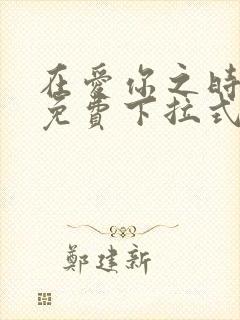 在愛你之時
免費下拉式
鄭建新